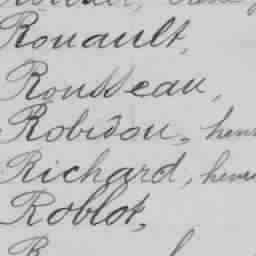 Rouault,
Rousseau,
Robidou, henri
Richard, henri
Roblot,